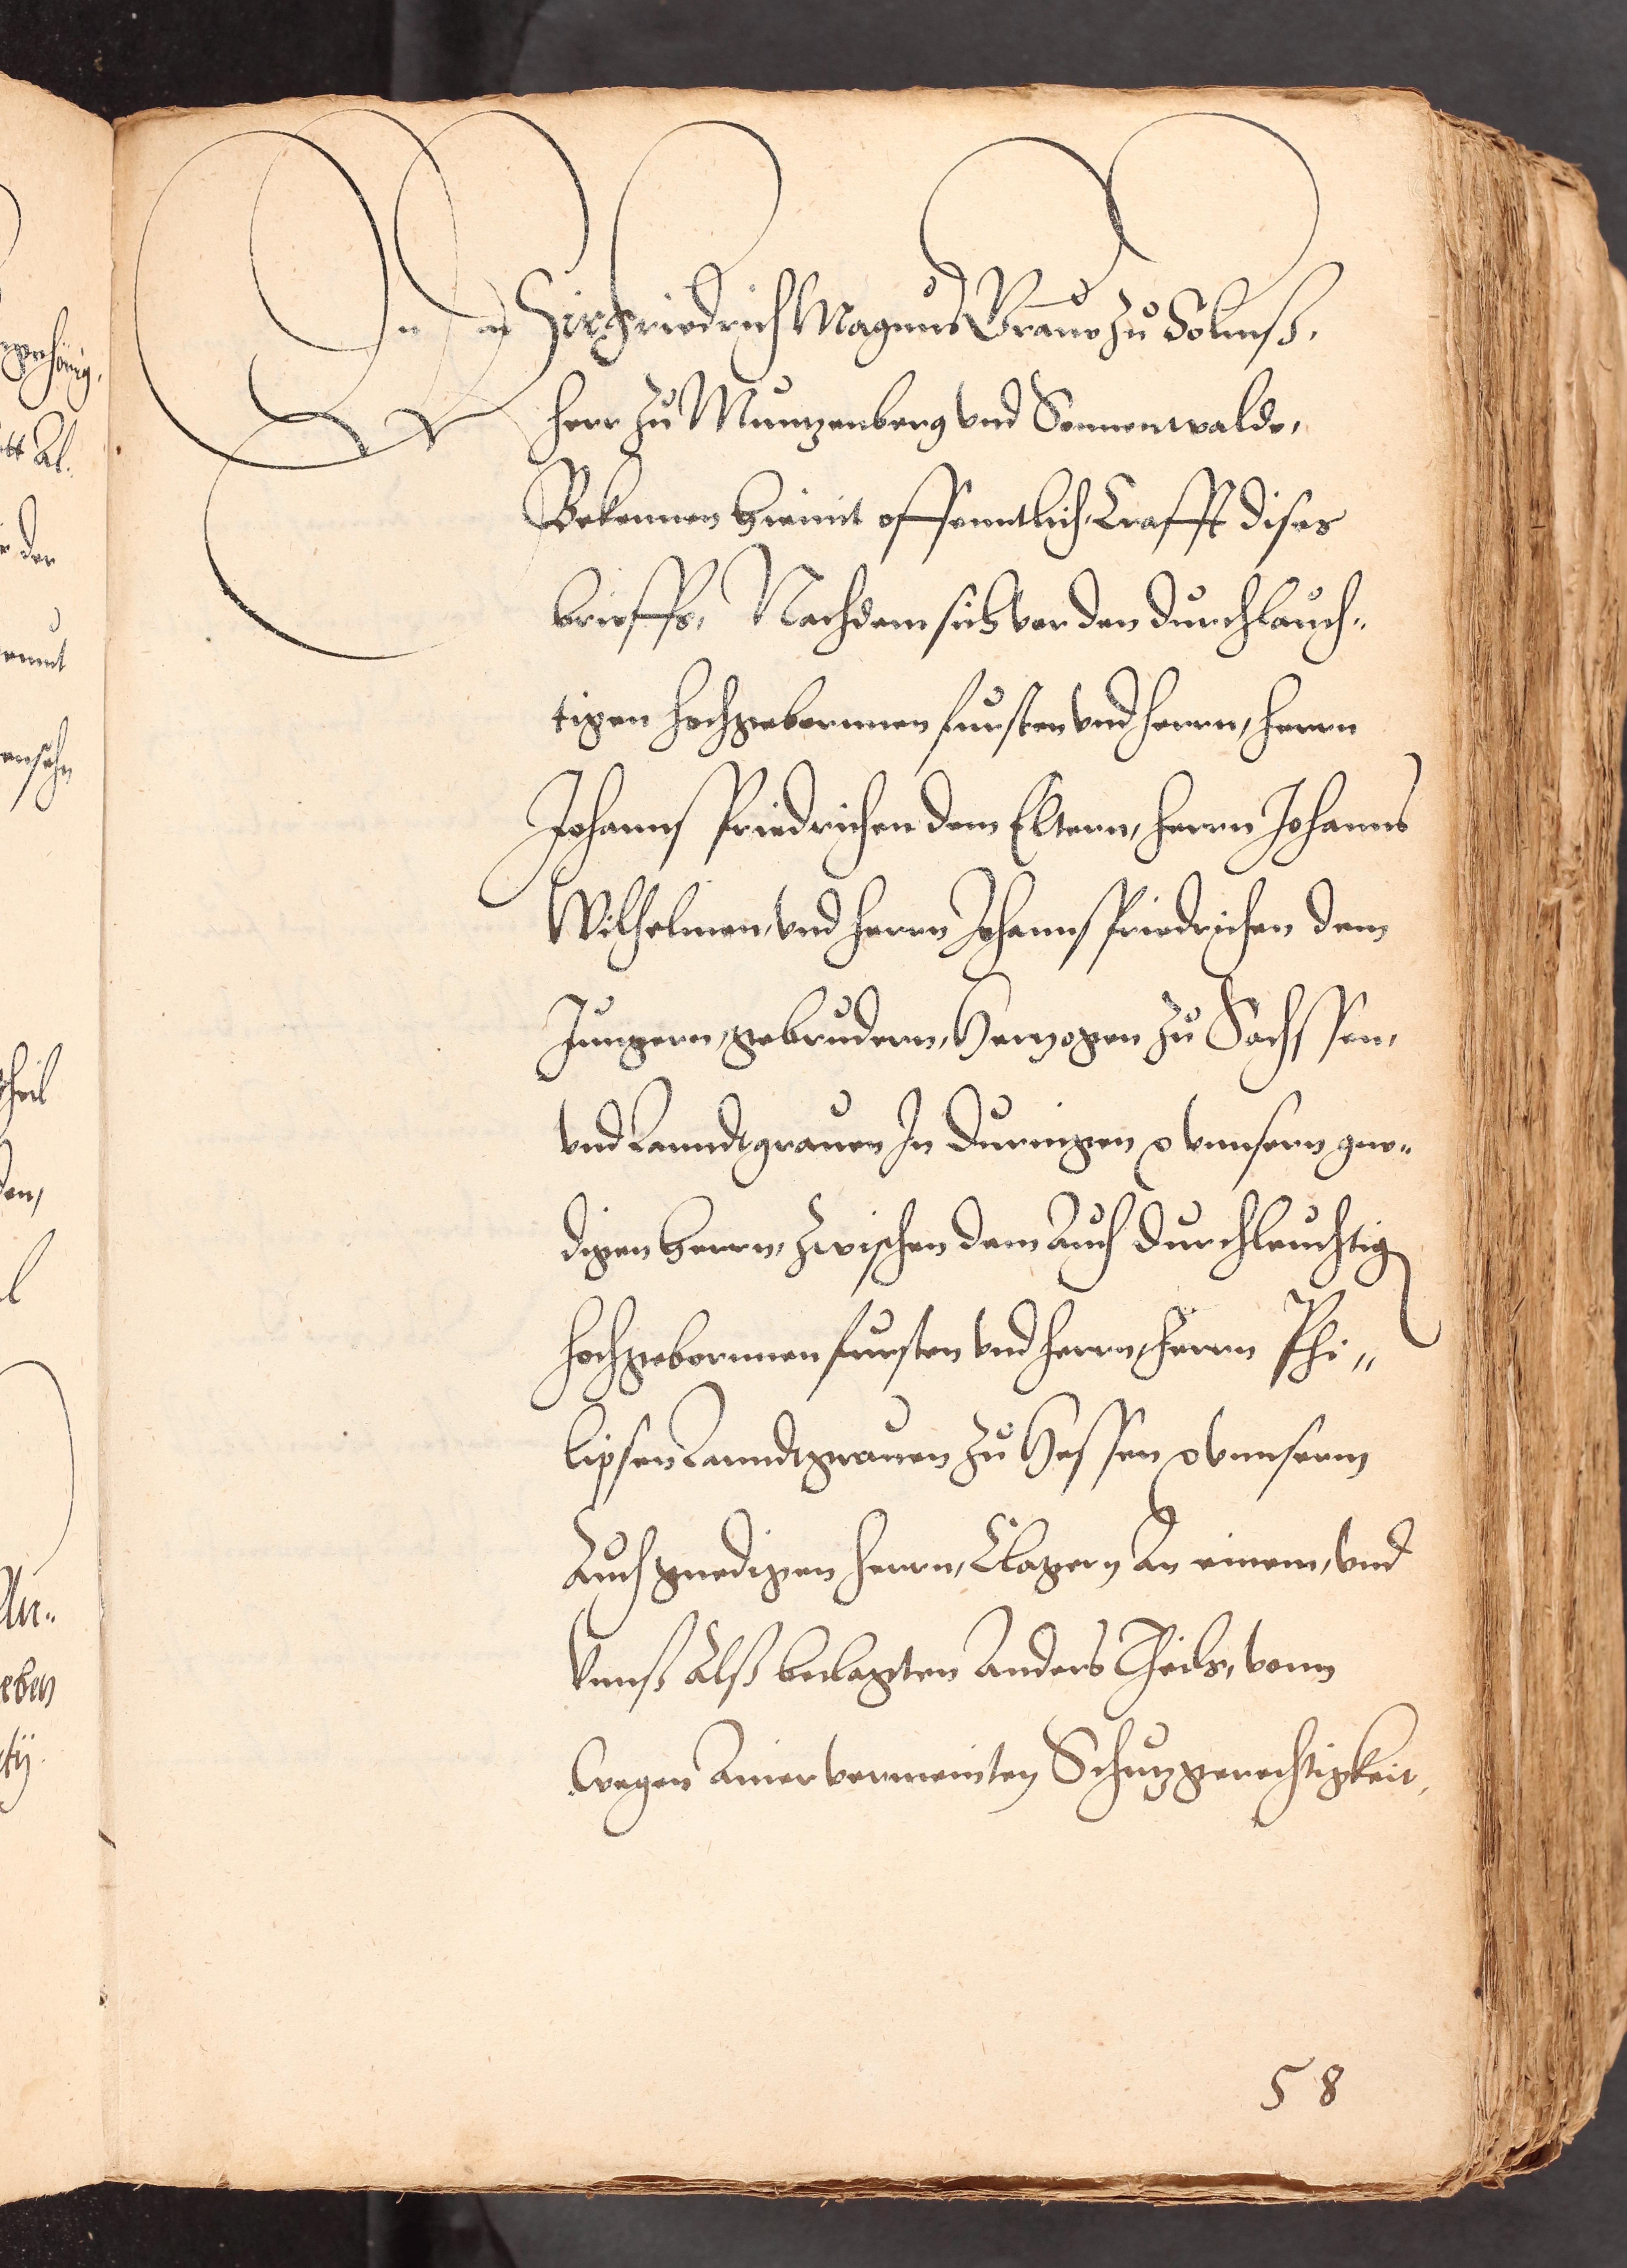 Wir Friedrich Magnus Graue zu Solmß,
herr zu Muntzenberg vnd Sonnenwalde,
Bekennen hiemit offenntlich, Crafft dises
brieffs, Nachdem sich vor den durchlauch-
tigen hochgebornnen fursten vnd herrn, herrn
Johanns Friedrichen dem Eltern, herrn Johanns
Wilhelmen, vnd herrn Johanns Friedrichen dem
Jungern, gebrudern, Hertzogen zu Sachssen,
vnd Lanndtgrauen In Duringen vnnsern gne-
digen herrn, zwischen dem Auch durchleuchtig
hochgebornnen fursten vnd herrn, herrn Phi-
lipsen Lanndtgrauen zu Hessen vnnserm
Auch gnedigen herrn, Clagern An einem, vnd
Vnnß Alß beclagten Anders Theils, vonn
wegen Ainer vermeinten Schutzgerechtigkeit,
58
gehörig,
der
theil
den,
eben